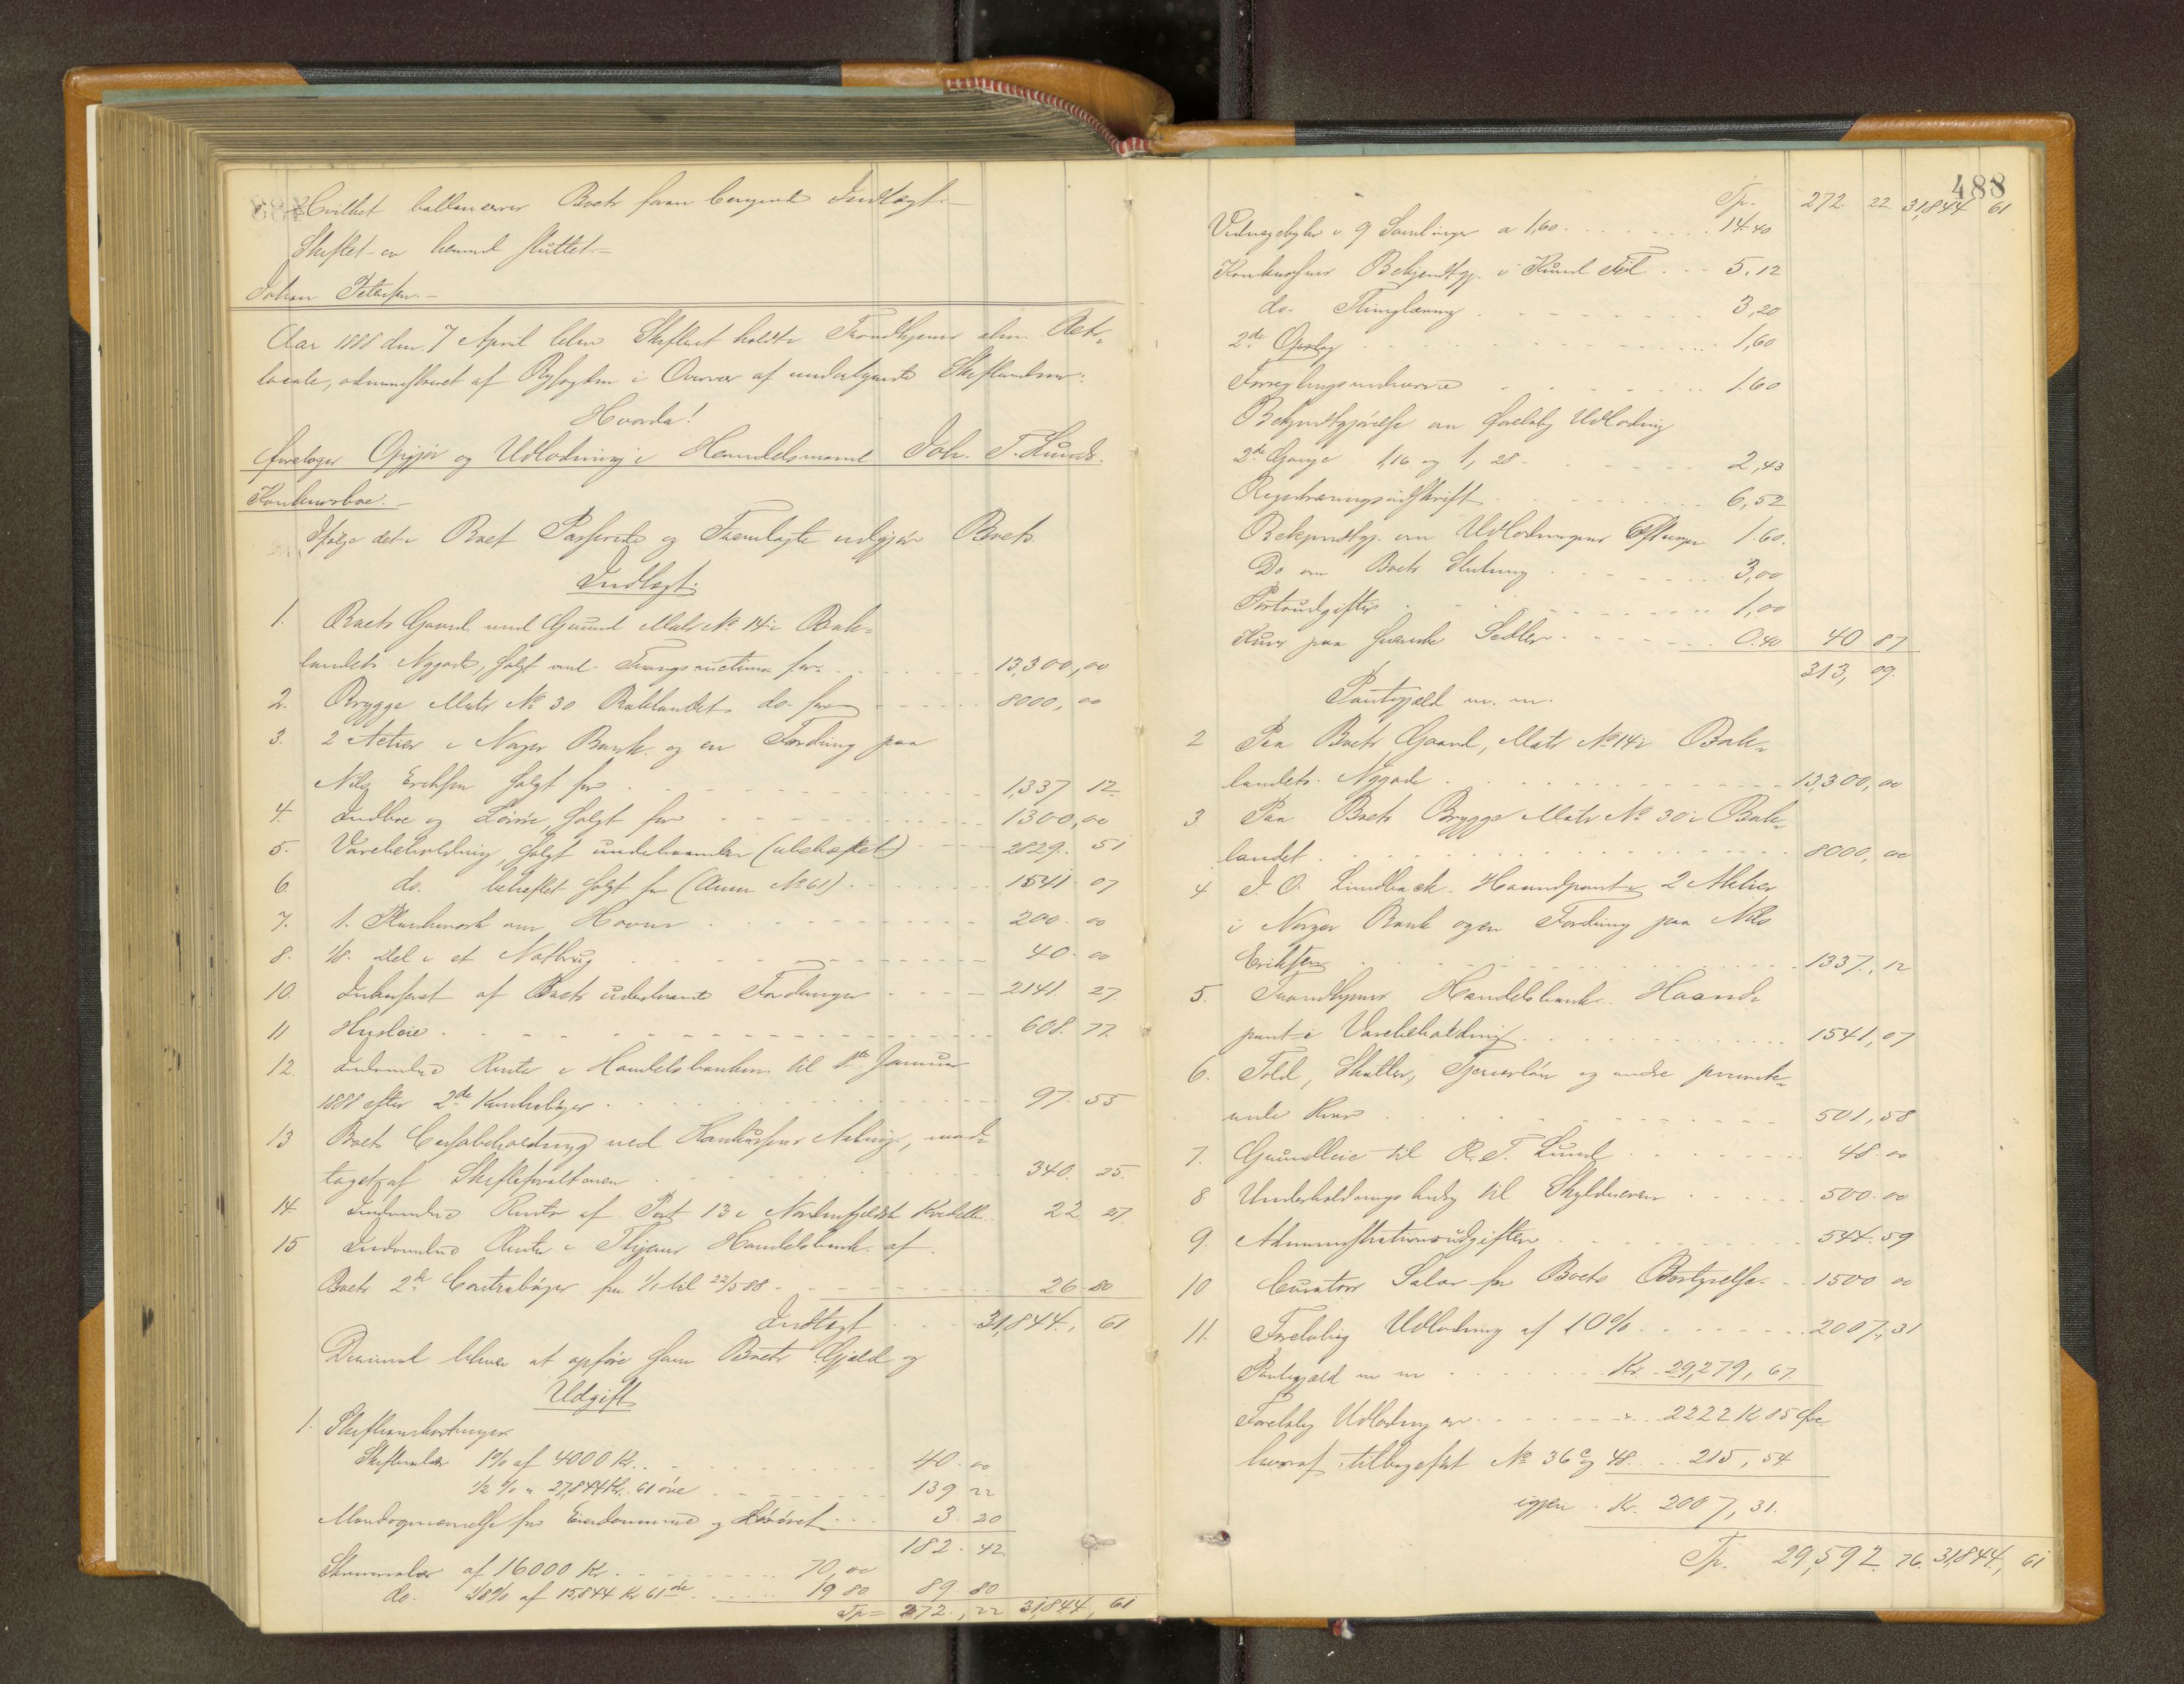 Hvilket ballancerer Boets foran beregnede Indtægt.
Skiftet er hermed sluttet.
Johan Petersen.
Aar 1888 den 7 April blev Skifteret holdt i Trondhjems alm. Rets-
locale, administreret af Byfogden i Overvær af undertegnede Skiftevidner:
Hvorda!
foretoges Opgjør og Udlodning i Handelsmand Joh. T. Lunds
Konkursboe.
Ifølge det i Boet Passerede og Fremlagte udgjør Boets
Indtægt:
1. Boets Gaard med Grund Matr No 14 i Bak-
landets Nygade, solgt ved Tvangsauction for 13,300,00
2. Brygge Matr No 30 Baklandet do. for 8000,00
3. 2 Actier i Norges Bank og en Fordring paa
Nils Eriksen solgt for 1,337 12
4. Indboe og Løsøre, solgt for 1300,00
5. Varebeholdning, solgt underhaanden (ubehæftet) 2829. 51
6. do. behæftet solgt for (Anm No 61) 1541. 07
7. 1. Plankeværk om Haven 200. 00
8. 1/8 Del i et Notbrug 40. 00
10. Inkasseret af Boets udestaaende Fordringer 2141. 27
11 Husleie 608. 77.
12. Indvundne Renter i Handelsbanken til 1ste Januar
1888 efter 2de Kontrabøger 97. 55
13 Boets Cassabeholdning ved Konkursens Aabning, mod-
taget af Skifteforvalteren 340. 25.
14. Indvundne Renter af Post 13 i Nordenfjeldske Kreditb. 22. 27.
15 Indvundne Renter i Thjems Handelsbank af
Boets 2de Contrabøger fra 1/1 til 22/3 88 26 80
Indtægt 31,844., 61
Derimod bliver at opføre som Boets Gjæld og
Udgift
1. Skifteomkostninger
Skiftesalær 1% af 4000 Kr. 40. 00
1/2 % " 27,844 Kr. 61 øre 139 22
Mændsopnævnelse for Eiendommene og Løsøret 3. 20
182. 42
Skriversalær af 16000 Kr. 70,00
do. 1/8% af 15,844 Kr 61 øre 19 80 89 80
Tp = 272., 22 31,844, 61
488
Tp. 272. 22 31,844 61
Vidnegebyhr i 9 Samlinger a 1,60 14.40
Konkursens Bekjendtgj. i Kund Tid 5.12
do. Thinglæsning 3,20
2de Opslag 1,60
Forseglingsudskrift 1.60
Bekjendtgjørelse om foreløbig Udlodning
2de Gange 1,16 og 1,28 2,43
Registreringsudskrift 6,52
Bekjendtgj. om Udlodningens 1.60.
Do om Boets Slutning 3,00
Portoudgifter 1,00
Kurs paa svenske Sedler 0.40 40 87
313, 09.
Pantegjæld m. m.
2 Paa Boets Gaard, Matr No 14 i Bak-
landets Nygade 13,300,00
3. Paa Boets Brygge Matr No 30 i Bak-
landet 8000, 00
4 J. O. Lundbæck Haandpant i 2 Aktier
i Norges Bank og en Fordring paa Nils
Eriksen 1337., 12
5. Trondhjems Handelsbank Haand-
pant i Varebeholdning 1541,07
6. Told, Skatter, Tjenerløn og andre privete-
rede Krav 501,58
7. Grundleie til R. T. Lund 48. 00
8 Underholdningsbidrag til Skyldneren 500. 00
9. Administrationsudgifter 544. 59
10 Curators Salær for Boets Bestyrelse 1500 00
11. Foreløbig Udlodning af 10% 2007,31
Pantegjæld m m Kr. 29,279, 67
Foreløbig Udlodning var 2222 Kr 85 Øre
hvoraf tilbageført No 36 og 48 215, 54
igjen Kr. 2007, 31.
Tp. 29,592. 76. 31,844., 61